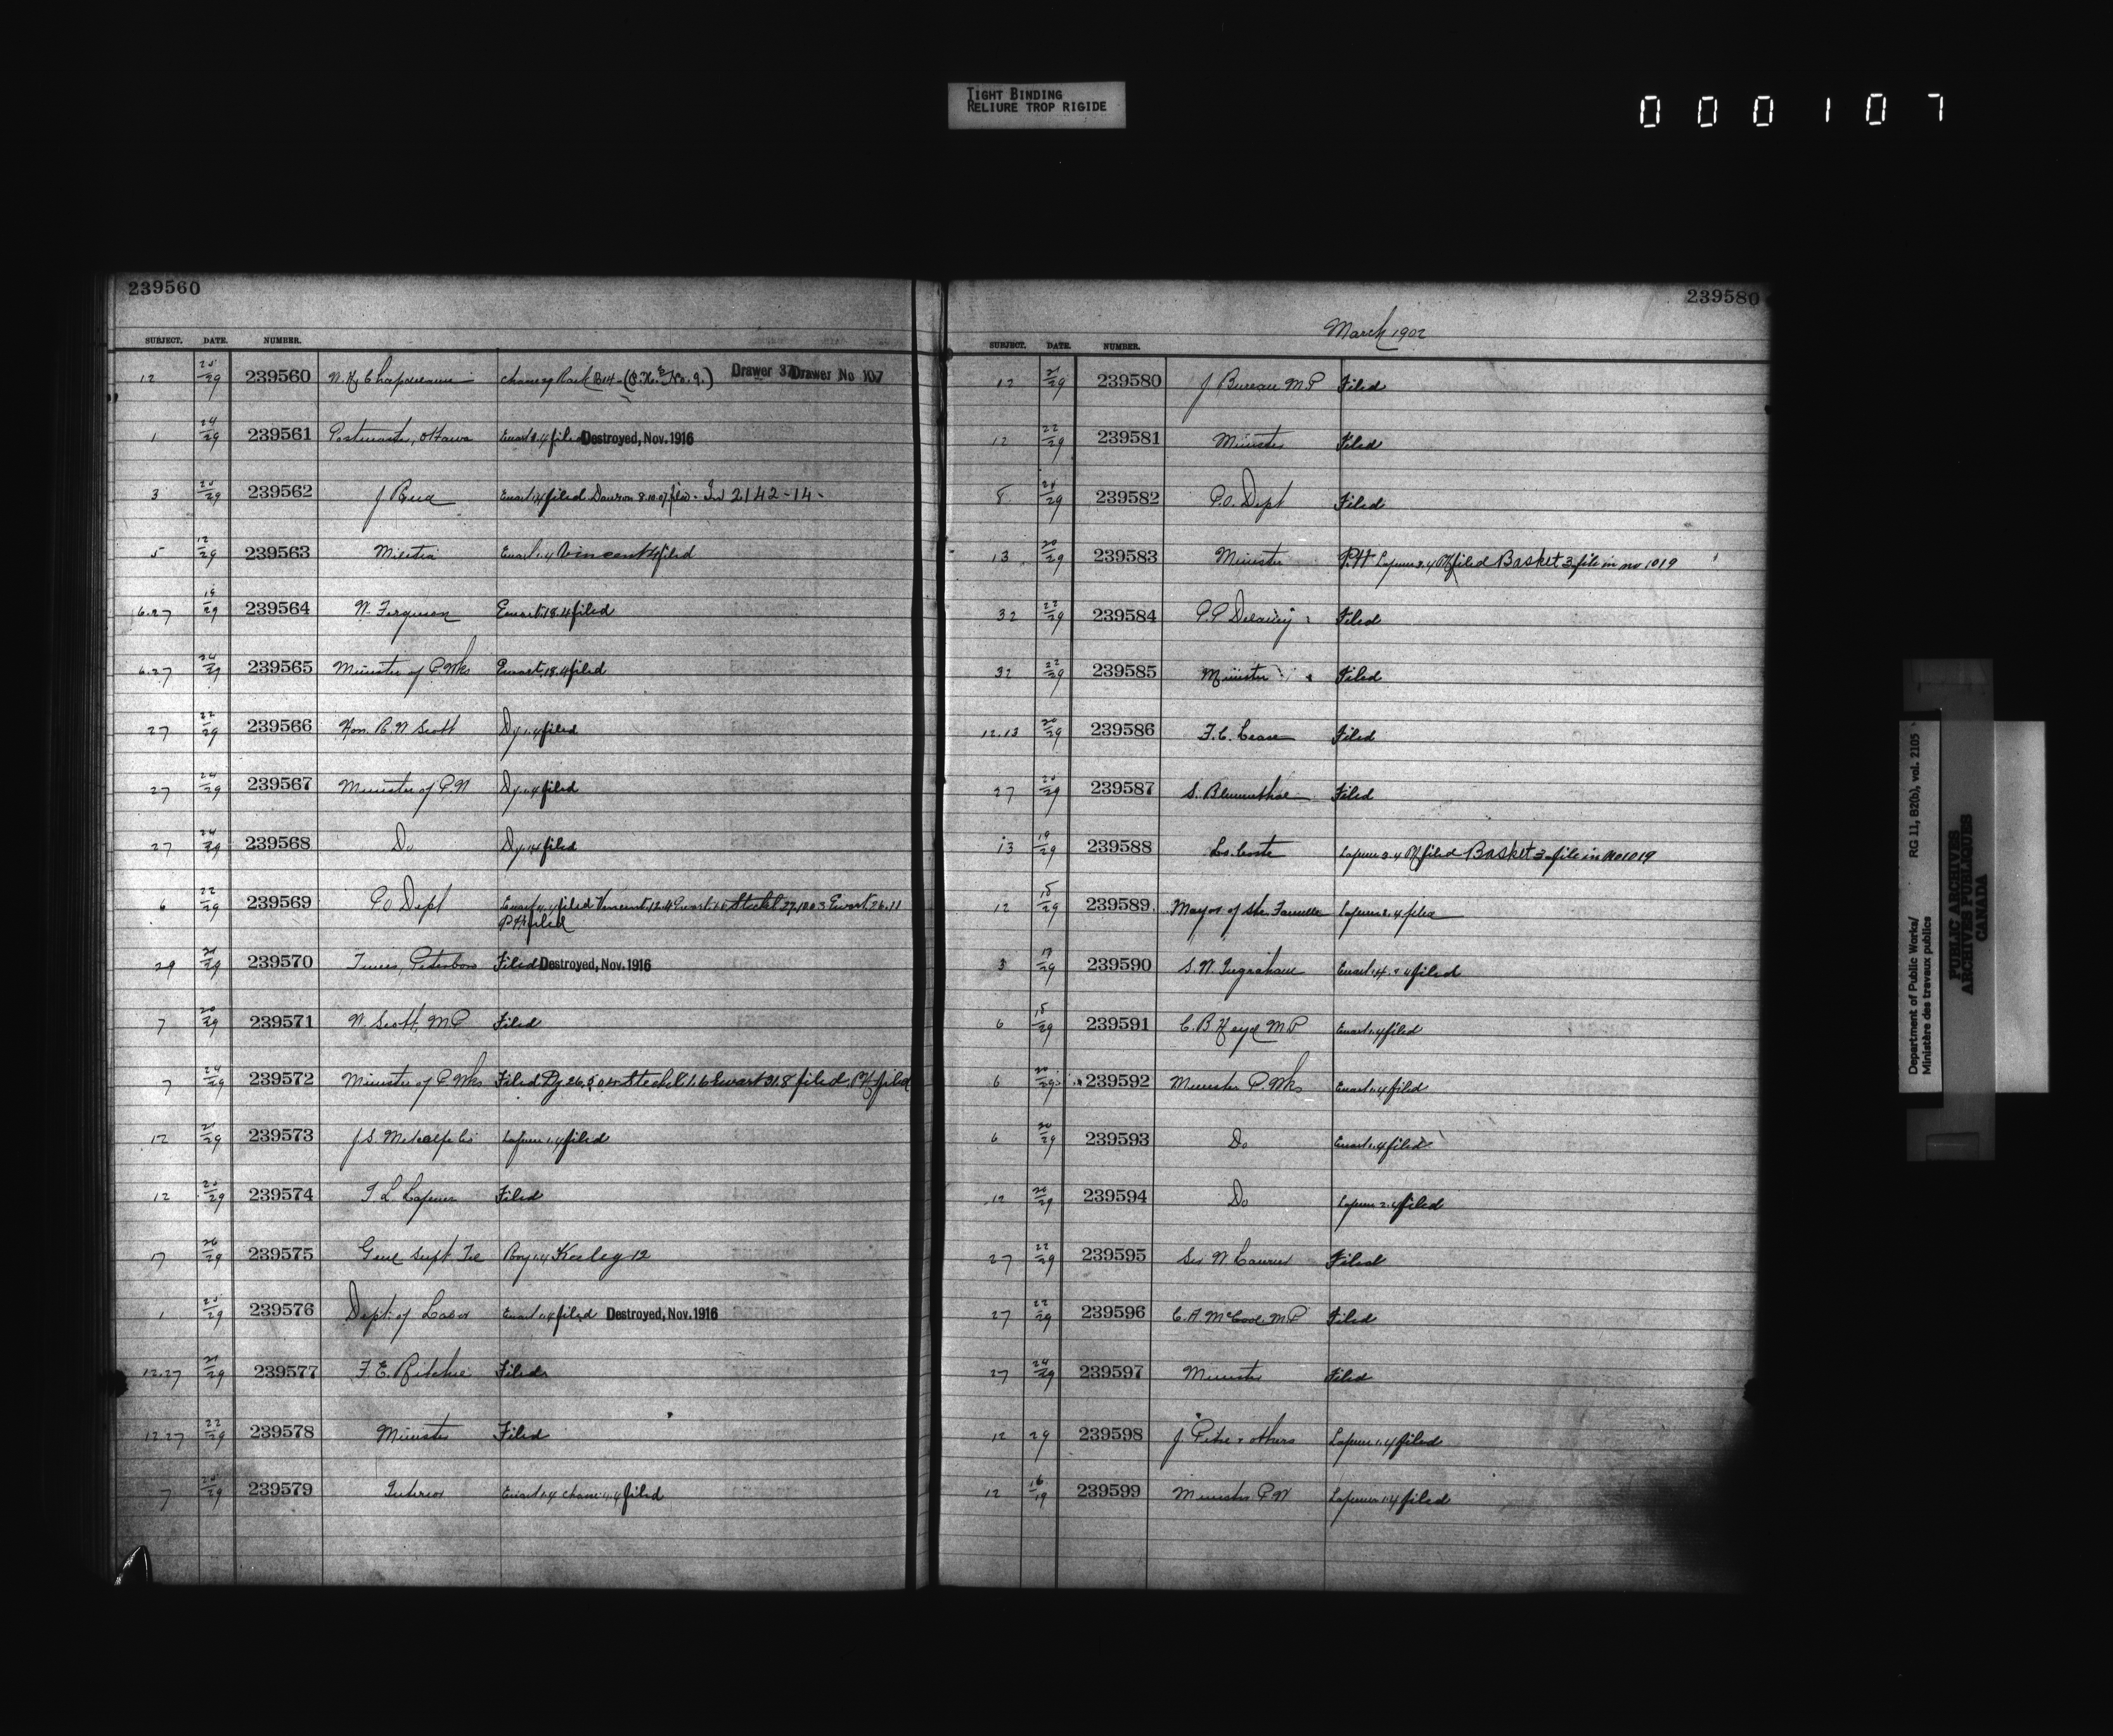 TIGHT BINDING
RELIURE TROP RIGIDE
000107
239560
SUBJECT. DATE. NUMBER.
12 25/29 239560 Drawer 37 Drawer No 107
1 24/29 239561 Postmaster, Ottawa Ewart 3.4 filed Destroyed, Nov. 1916
3 25/29 239562 J Reid Ewart 1.4 filed Dawson 8.10.07 filed - 2142-14-
5 12/29 239563 Militia Ewart 1.4 Vincent 4 filed
6.27 18/29 239564 W. Ferguson Ewart 18.4 filed
6.27 24/29 239565 Minister of P. Wks Ewart 18.4 filed
27 22/29 239566 Hon. R. W Scott Dy 1.4 filed
27 24/29 239567 Minister of P. W Dy 1.4 filed
27 24/29 239568 Do Dy 1.4 filed
6 22/29 239569 P O Dept Ewart 4.4 filed Vincent 12.4 Ewart Steckel 27.10.03 Ewart 26.11
P.H filed
29 29 239570 Times, Peterboro Filed Destroyed, Nov. 1916
7 20/29 239571 W. Scott, M P Filed
7 24/29 239572 Minister of P. Wks Filed Dy 26.5.04 Steckel 1.6 Ewart 31.8 filed. P.H. filed
12 21/29 239573 J. S. Metcalfe Co Lafleur 1.4 filed
12 25/29 239574 Filed
17 26/29 239575 Genl Supt. Tel 1.4 Keeley 12
1 25/29 239576 Dept. of Labor Ewart 1.4 filed Destroyed, Nov. 1916
12.27 21/29 239577 F. E. Ritchie Filed
12.27 22/29 239578 Minister Filed
7 29 239579 Interior Ewart 1.4 filed
239580
March 1902
SUBJECT. DATE. NUMBER.
12 21/29 239580 J Bureau M P Filed
12 22/29 239581 Minister Filed
8 24/29 239582 P.O. Dept Filed
13 20/29 239583 Minister P.H filed Basket 3 file in no 1019
32 22/29 239584 Filed
32 22/29 239585 Minister Filed
12.13 20/29 239586 Filed
27 29 239587 S. Blumenthal Filed
13 19/29 239588 Ls. Coste filed Basket 3 file in No 1019
12 15/29 239589 Mayor of Ste. Famille filed
3 17/29 239590 S. W. Ingraham Ewart filed
6 15/29 239591 C. B Heyd M P Ewart 1.4 filed
6 20/29 239592 Minister P. Wks Ewart 1.4 filed
6 20/29 239593 Do Ewart 1.4 filed
12 20/29 239594 Do 2.4 filed
27 22/29 239595 Sir W Laurier Filed
27 22/29 239596 C. A. McCool M P Filed
27 24/29 239597 Minister Filed
12 29 239598 J. Petre & others 1.4 filed
12 16/19 239599 Minister P. W 1.4 filed
Department of Public Works/ RG 11, B2(b), vol. 2105
Ministère des travaux publics
PUBLIC ARCHIVES
ARCHIVES PUBLIQUES
CANADA